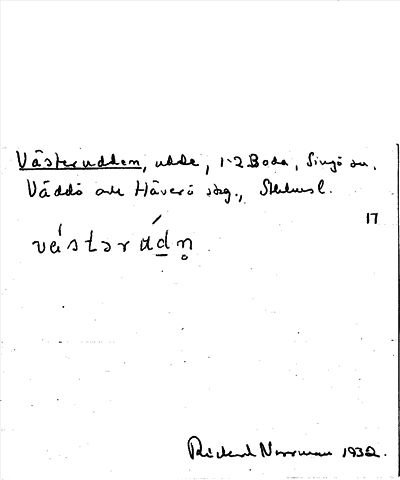 Västerudden, udde, 1-2 Boda, Singö sn.
Väddö och Häverö skg., Sthlms l.
17
västərudn̥
Rickard Norrman 1932.